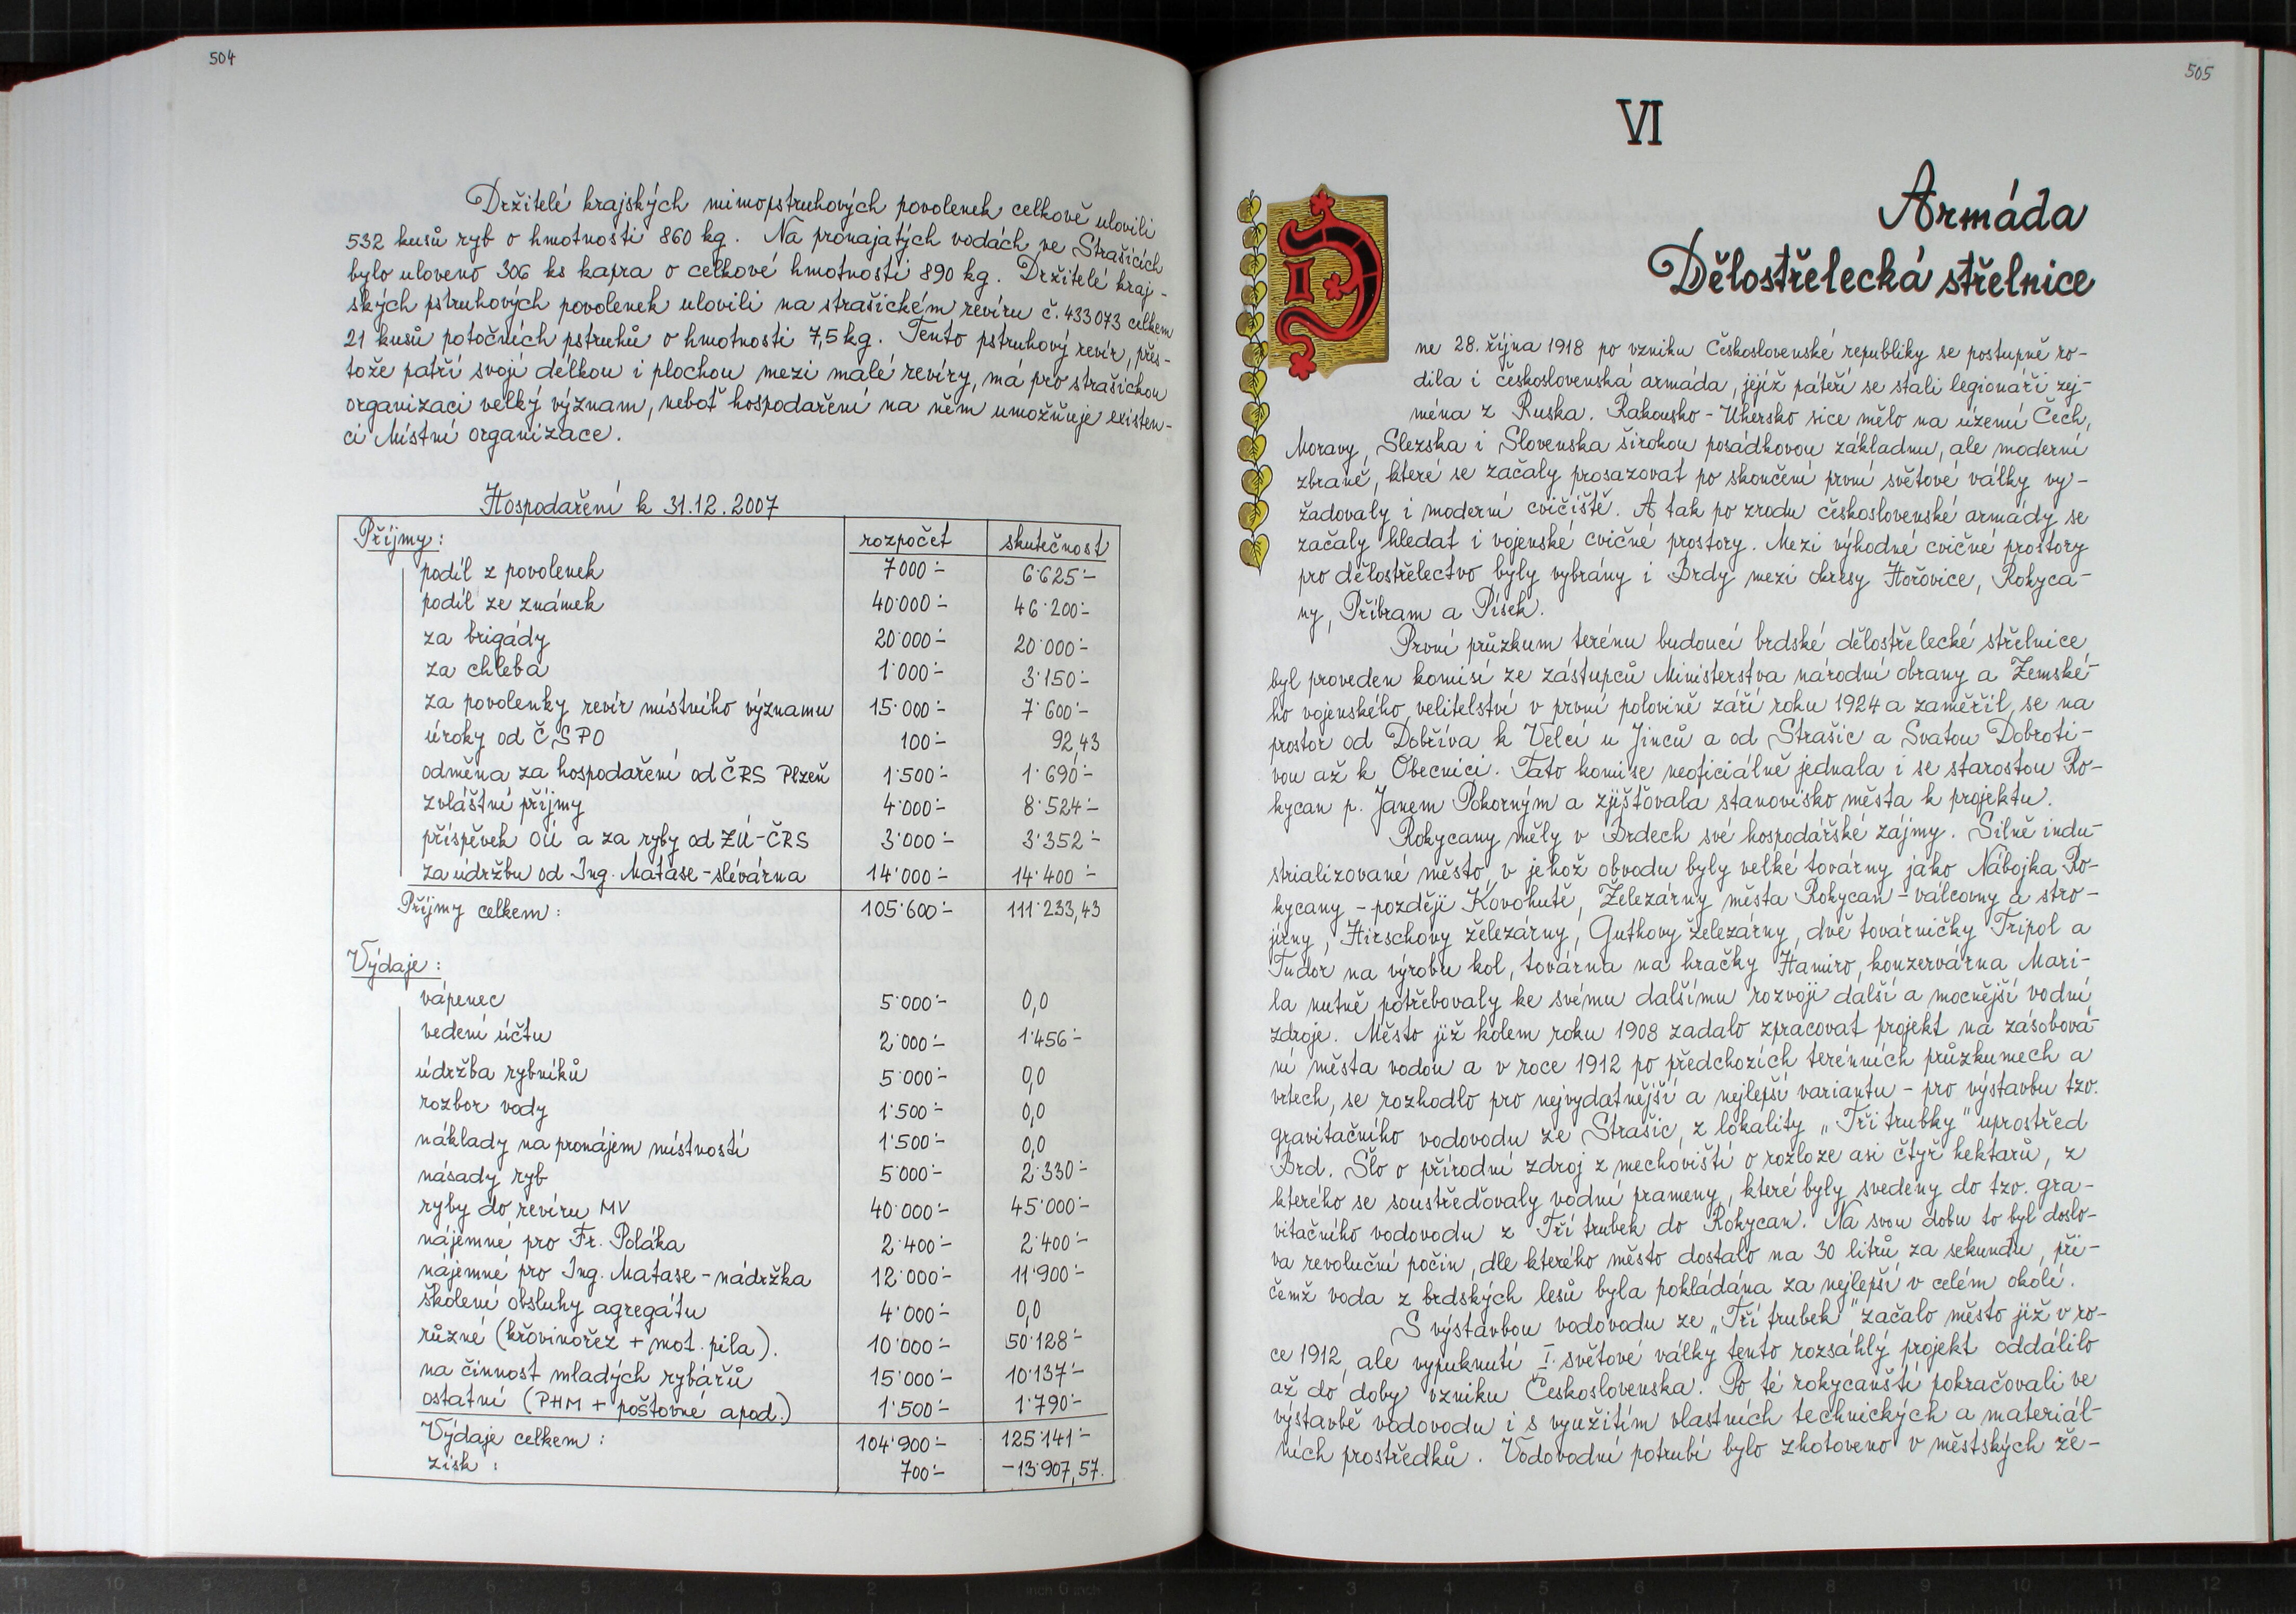 504
Držitelé krajských mimopstruhových povolenek celkově ulovili
532 kusů ryb o hmotnosti 860 kg. Na pronajatých vodách ve Strašicích
bylo uloveno 306 ks kapra o celkové hmotnosti 890 kg. Držitelé kraj-
ských pstruhových povolenek ulovili na strašickém revíru č. 433073 celkem
21 kusů potočních pstruhů o hmotnosti 7,5 kg. Tento pstruhový revír, přes-
tože patří svojí délkou i plochou mezi malé revíry, má pro strašickou
organizaci velký význam, neboť hospodaření na něm umožňuje existen-
ci Místní organizace.
Hospodaření k 31.12.2007
Příjmy: rozpočet skutečnost
podíl z povolenek 7000∸ 6˙625∸
podíl ze známek 40˙000∸ 46˙200∸
za brigády 20˙000∸ 20˙000∸
za chleba 1˙000∸ 3˙150∸
za povolenky revír místního významu 15˙000∸ 7˙600∸
úroky od ČSPO 100∸ 92,43
odměna za hospodaření od ČRS Plzeň 1˙500∸ 1˙690∸
zvláštní příjmy 4˙000∸ 8˙524∸
příspěvek OÚ a za ryby od ZÚ-ČRS 3˙000∸ 3˙352∸
za údržbu od Ing. Matase-slévárna 14˙000∸ 14˙400∸
Příjmy celkem: 105˙600∸ 111˙233,43
Výdaje:
vápenec 5˙000∸ 0,0
vedení účtu 2˙000∸ 1˙456∸
údržba rybníků 5˙000∸ 0,0
rozbor vody 1˙500∸ 0,0
náklady na pronájem místností 1˙500∸ 0,0
násady ryb 5˙000∸ 2˙330∸
ryby do revíru MV 40˙000∸ 45˙000∸
nájemné pro Fr. Poláka 2˙400∸ 2˙400∸
nájemné pro Ing. Matase-nádržka 12˙000∸ 11˙900∸
školení obsluhy agregátu 4˙000∸ 0,0
různé (křovinořez + mot. pila). 10˙000∸ 50˙128∸
na činnost mladých rybářů 15˙000∸ 10˙137∸
ostatní (PHM + poštovné apod.) 1˙500∸ 1˙790∸
Výdaje celkem: 104˙900∸ 125˙141∸
zisk: 700∸ -13˙907,57.
505
VI
Armáda
Dělostřelecká střelnice
D
ne 28. října 1918 po vzniku Československé republiky se postupně ro-
dila i československá armáda, jejíž páteří se stali legionáři zej-
ména z Ruska. Rakousko-Uhersko sice mělo na území Čech,
Moravy, Slezska i Slovenska širokou posádkovou základnu, ale moderní
zbraně, které se začaly prosazovat po skončení první světové války vy-
žadovaly i moderní cvičiště. A tak po zrodu československé armády se
začaly hledat i vojenské cvičné prostory. Mezi výhodné cvičné prostory
pro dělostřelectvo byly vybrány i Brdy mezi okresy Hořovice, Rokyca-
ny, Příbram a Písek.
První průzkum terénu budoucí brdské dělostřelecké střelnice
byl proveden komisí ze zástupců Ministerstva národní obrany a Zemské-
ho vojenského velitelství v první polovině září roku 1924 a zaměřil se na
prostor od Dobříva k Velcí u Jinců a od Strašic a Svatou Dobroti-
vou až k Obecnici. Tato komise neoficiálně jednala i se starostou Ro-
kycan p. Janem Pokorným a zjišťovala stanovisko města k projektu.
Rokycany měly v Brdech své hospodářské zájmy. Silně indu-
strializované město, v jehož obvodu byly velké továrny jako Nábojka Ro-
kycany - později Kovohutě, Železárny města Rokycan - válcovny a stro-
jírny, Hirschovy železárny, Guthovy železárny, dvě továrničky Tripol a
Tudor na výrobu kol, továrna na hračky Hamiro, konzervárna Mari-
la nutně potřebovaly ke svému dalšímu rozvoji další a mocnější vodní
zdroje. Město již kolem roku 1908 zadalo zpracovat projekt na zásobová-
ní města vodou a v roce 1912 po předchozích terénních průzkumech a
vrtech, se rozhodlo pro nejvydatnější a nejlepší variantu - pro výstavbu tzv.
gravitačního vodovodu ze Strašic, z lokality „Tři trubky" uprostřed
Brd. Šlo o přírodní zdroj z mechovišti o rozloze asi čtyř hektarů, z
kterého se soustřeďovaly vodní prameny, které byly svedeny do tzv. gra-
vitačního vodovodu z Tří trubek do Rokycan. Na svou dobu to byl doslo-
va revoluční počin, dle kterého město dostalo na 30 litrů za sekundu, při-
čemž voda z brdských lesů byla pokládána za nejlepší v celém okolí.
S výstavbou vodovodu ze „Tří trubek" začalo město již v ro-
ce 1912, ale vypuknutí I. světové války tento rozsáhlý projekt oddálilo
až do doby vzniku Československa. Po té rokycanští pokračovali ve
výstavbě vodovodu i s využitím vlastních technických a materiál-
ních prostředků. Vodovodní potrubí bylo zhotoveno v městských že-
11 10 9 8 7 6 5 4 3 2 1 inch 1 2 3 4 5 6 7 8 9 10 11 12